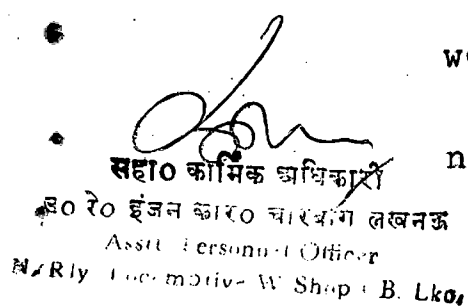 w
n
सहा० कार्मिक अधिकारी
उ० रे० इंजन कार० चारबाग लखनऊ
Asstt Personnel Officer
N. Rly Locomotive W Shop C B. Lko,